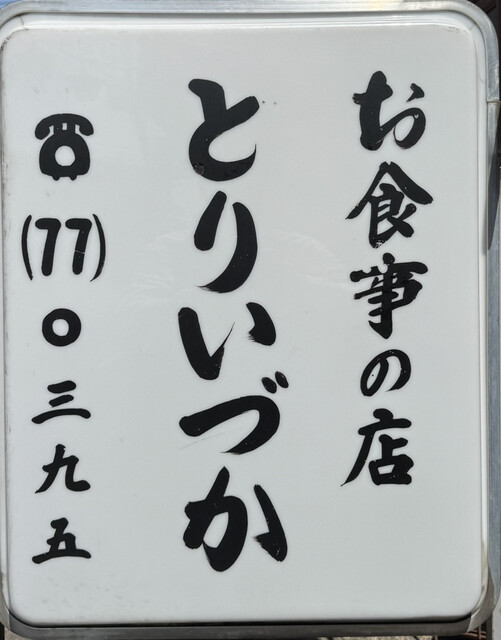 お食事の店
とりいづか
☎(77)〇三九五